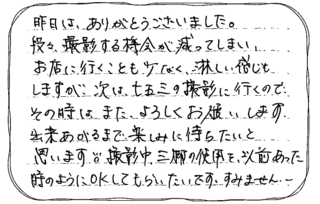 昨日は、ありがとうございました。
段々、撮影する機会が減ってしまい、
お店に行くことも少なく、淋しい感じも
しますが、次は、七五三の撮影に行くので
その時は、また、よろしくお願いします。
出来あがるまで楽しみに待ちたいと
思います。撮影中、三脚の使用を、以前あった
時のようにOKしてもらいたいです。すみません…